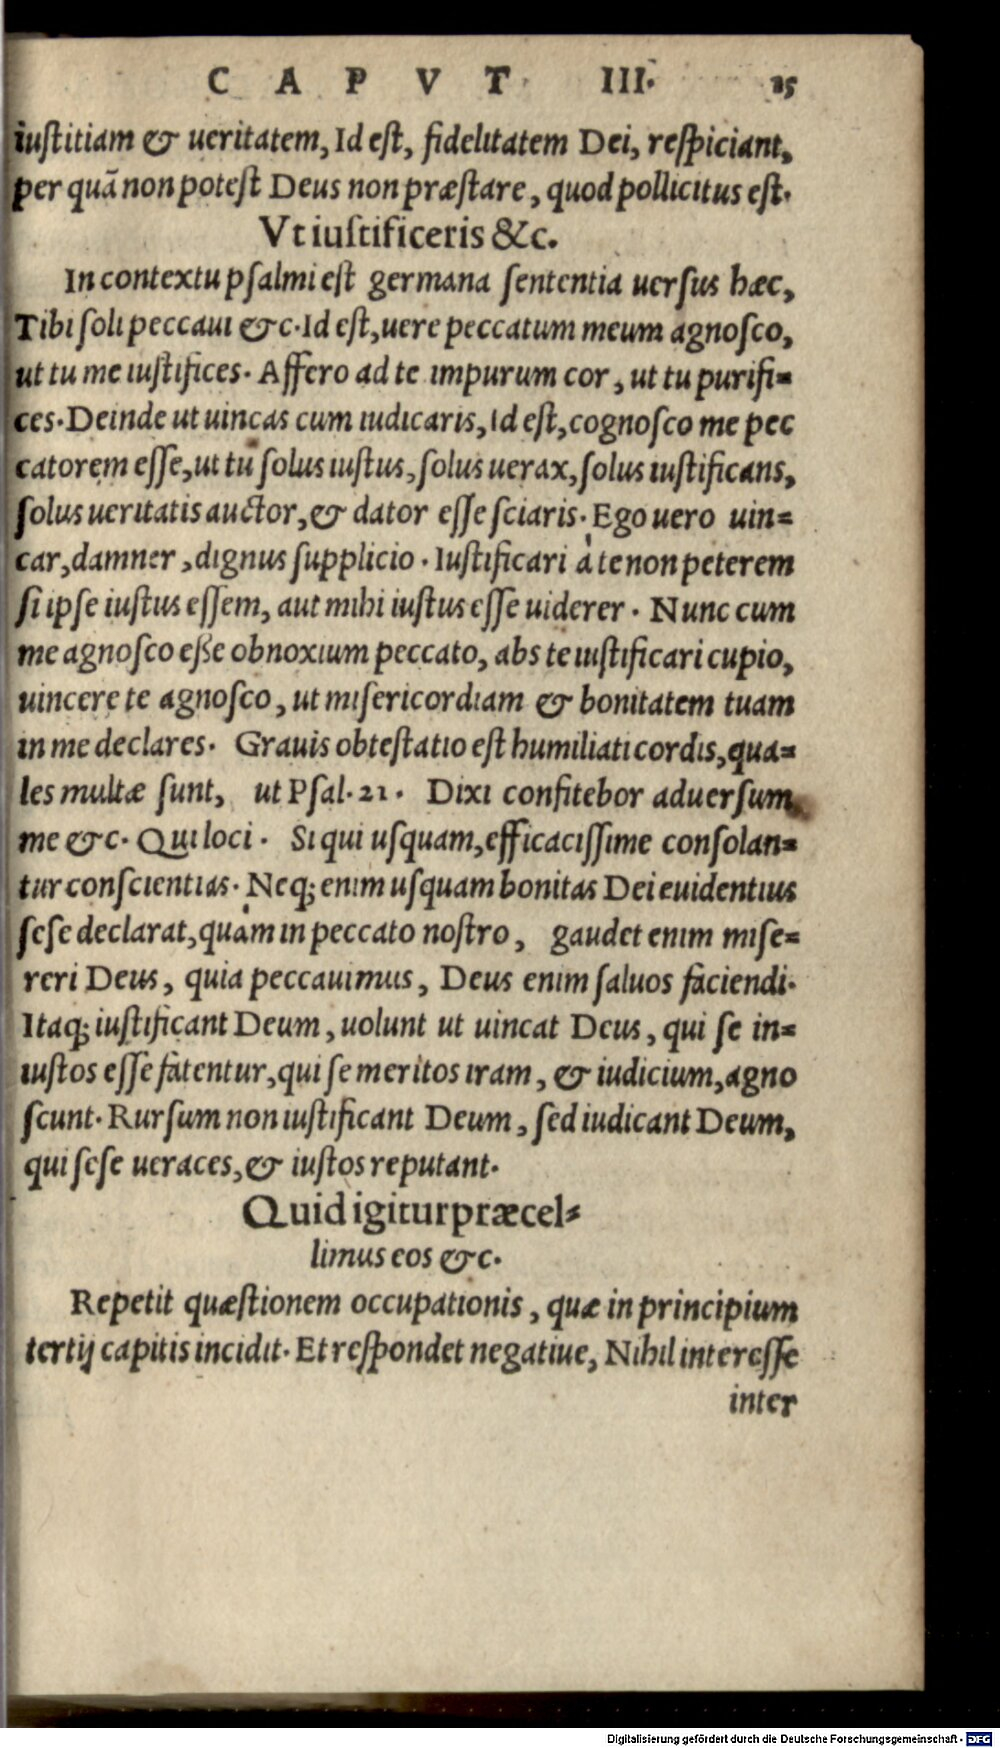 CAPVT III. 25
iustitiam & ueritatem, Id est, fidelitatem Dei, respiciant,
per quā non potest Deus non præstare, quod pollicitus est.
Vt iustificeris &c.
In contextu psalmi est germana sententia uersus hæc,
Tibi soli peccaui &c. Id est, uere peccatum meum agnosco,
ut tu me iustifices. Affero ad te impurum cor, ut tu purifi=
ces. Deinde ut uincas cum iudicaris, Id est, cognosco me pec
catorem esse, ut tu solus iustus, solus uerax, solus iustificans,
solus ueritatis auctor, & dator esse sciaris. Ego uero uin=
car, damner, dignus supplicio. Iustificari à te non peterem
si ipse iustus essem, aut mihi iustus esse uiderer. Nunc cum
me agnosco eße obnoxium peccato, abs te iustificari cupio,
uincere te agnosco, ut misericordiam & bonitatem tuam
in me declares. Grauis obtestatio est humiliati cordis, qua=
les multæ sunt, ut Psal. 21. Dixi confitebor aduersum
me &c. Qui loci. Si qui usquam, efficacissime consolan=
tur conscientias. Neq; enim usquam bonitas Dei euidentius
sese declarat, quàm in peccato nostro, gaudet enim mise=
reri Deus, quia peccauimus, Deus enim saluos faciendi.
Itaq; iustificant Deum, uolunt ut uincat Deus, qui se in=
iustos esse fatentur, qui se meritos iram, & iudicium, agno
scunt. Rursum non iustificant Deum, sed iudicant Deum,
qui sese ueraces, & iustos reputant.
Quid igitur præcel=
limus eos &c.
Repetit quæstionem occupationis, quæ in principium
tertij capitis incidit. Et respondet negatiue, Nihil interesse
inter
Digitalisierung gefördert durch die Deutsche Forschungsgemeinschaft - DFG